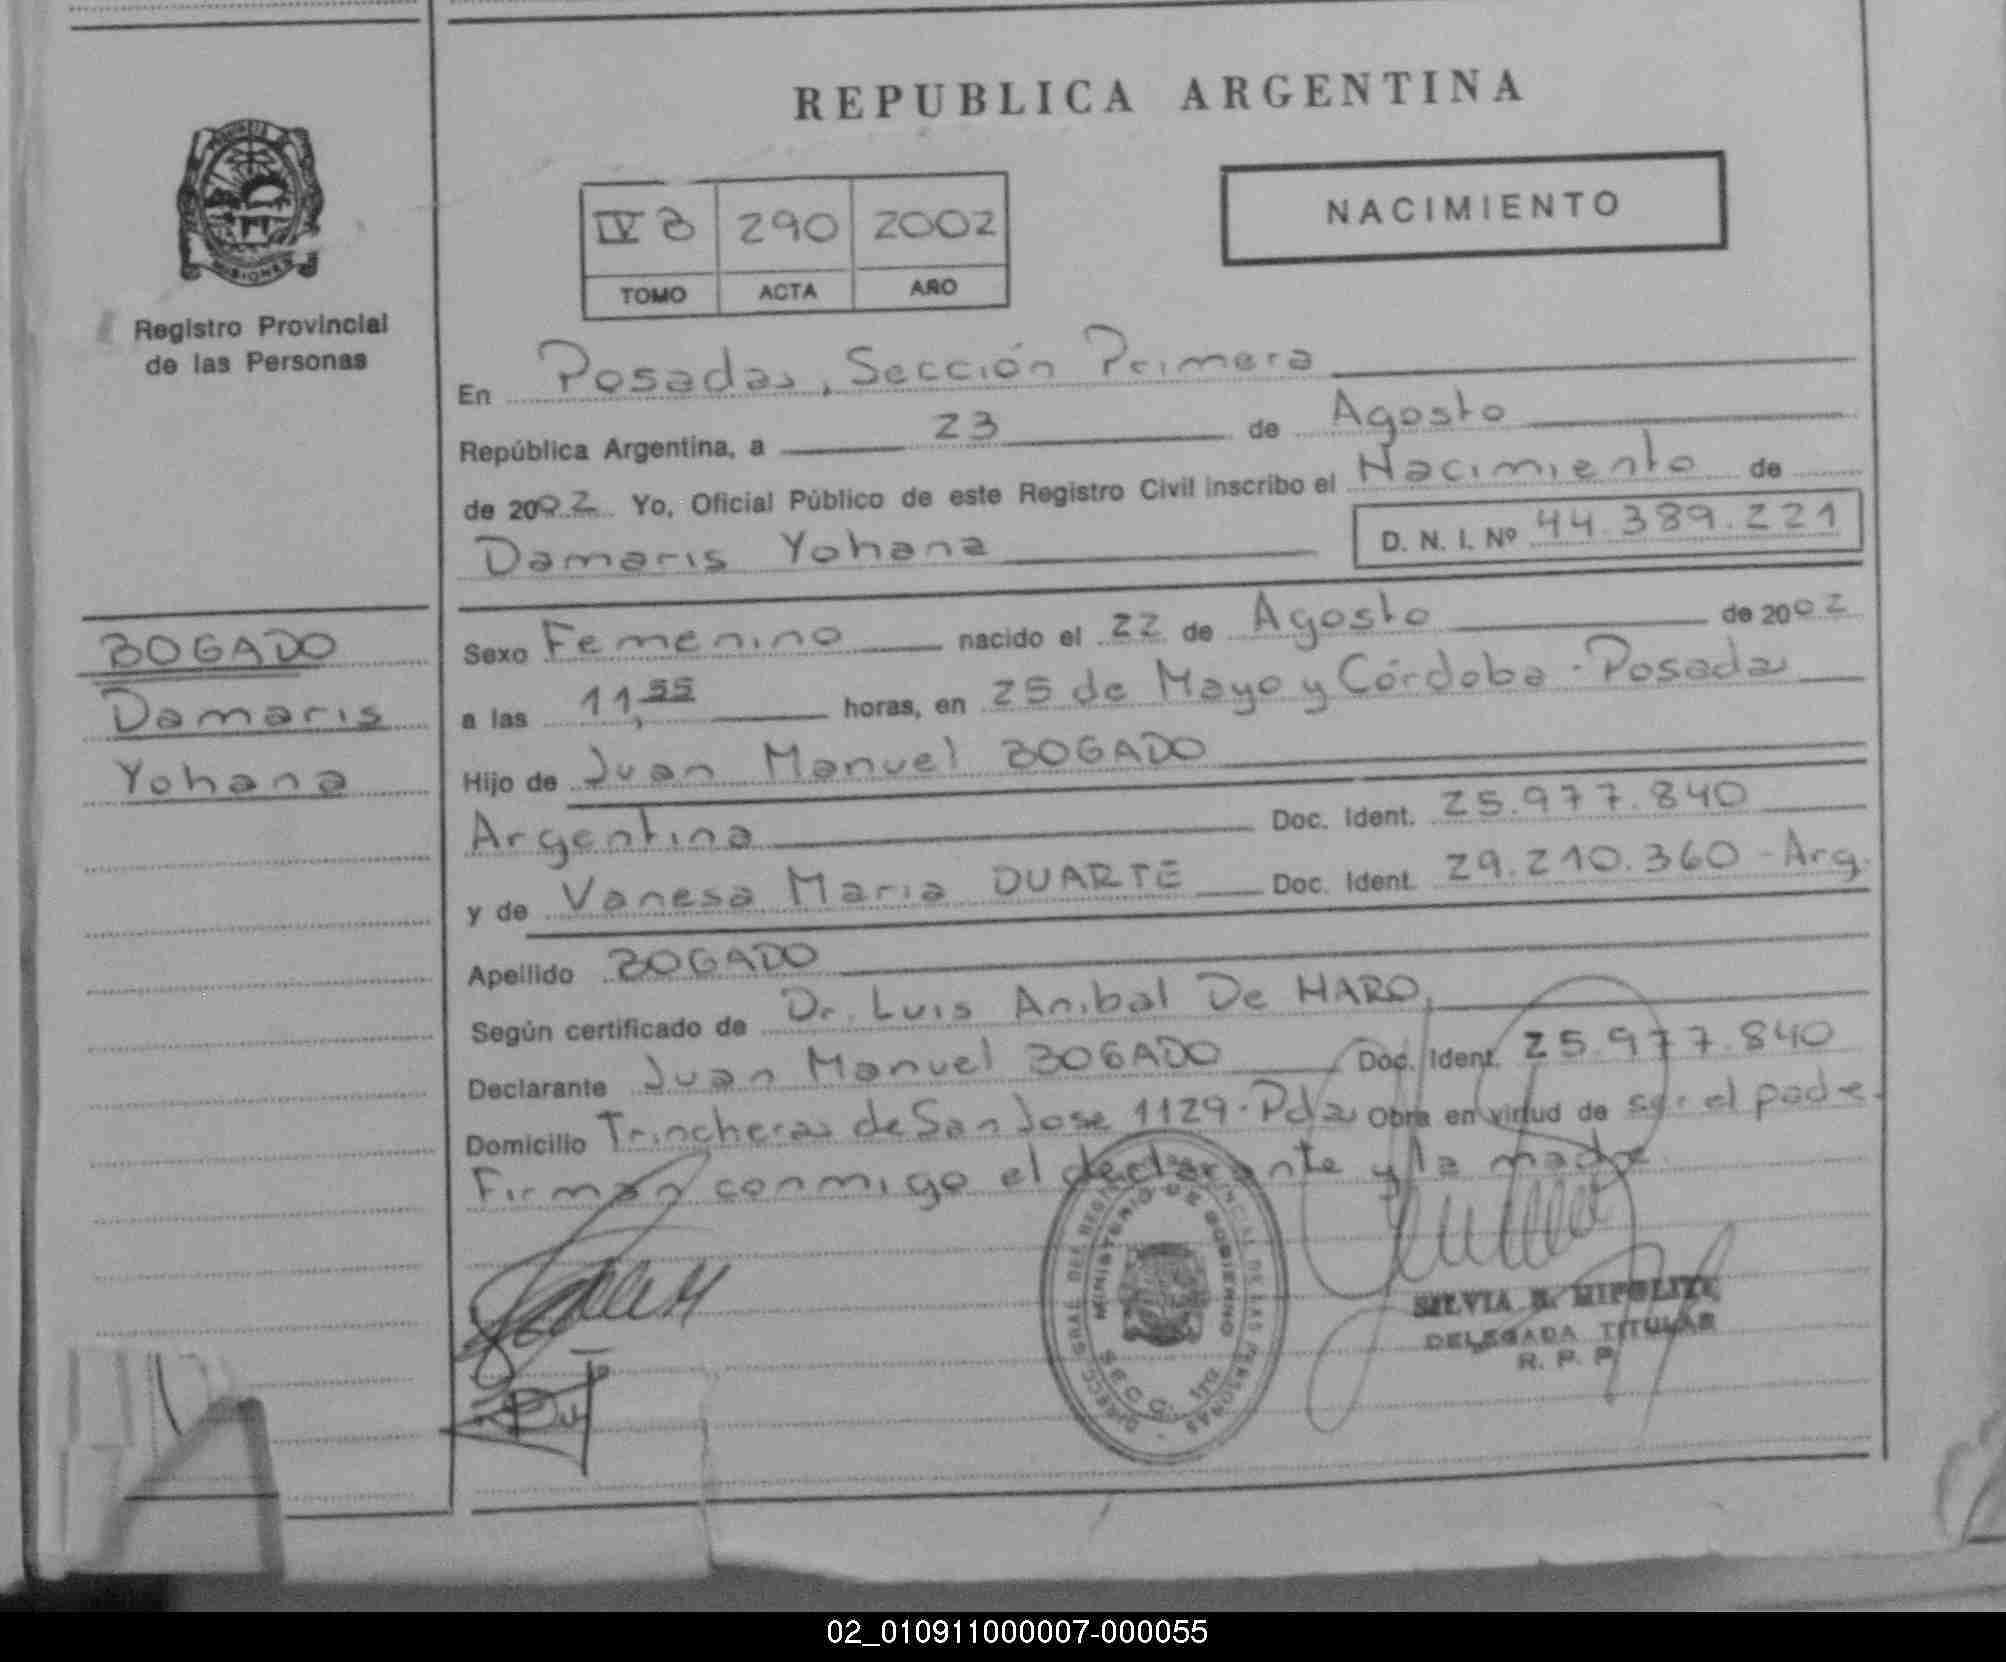 REPUBLICA ARGENTINA
PROVINCIA DE MISIONES
Registro Provincial
de las Personas
NACIMIENTO
IV B 290 2002
TOMO ACTA AÑO
En Posadas, Sección Primera
República Argentina, a 23 de Agosto
de 2002 Yo, Oficial Público de este Registro Civil inscribo el Nacimiento de
Damaris Yohana D. N. I. Nº 44.389.221
BOGADO
Damaris
Yohana
Sexo Femenino nacido el 22 de Agosto de 2002
a las 11,55 horas, en 25 de Mayo y Córdoba - Posadas
Hijo de Juan Manuel BOGADO
Argentina Doc. Ident. 25.977.840
y de Vanesa Maria DUARTE Doc. Ident. 29.210.360 - Arg.
Apellido BOGADO
Según certificado de Dr. Luis Anibal De HARO,
Declarante Juan Manuel BOGADO Doc. Ident. 25.977.840
Domicilio Trincheras de San Jose 1129 - Pdas Obra en virtud de ser el padre.
Firman conmigo el declarante y la madre.
DIRECC. GRAL. DEL REGISTRO PROVINCIAL DE LAS PERSONAS
MINISTERIO DE GOBIERNO
SECC. 1ra
SILVIA HIPOLITO
DELEGADA TITULAR
R. P. P.
02_010911000007-000055